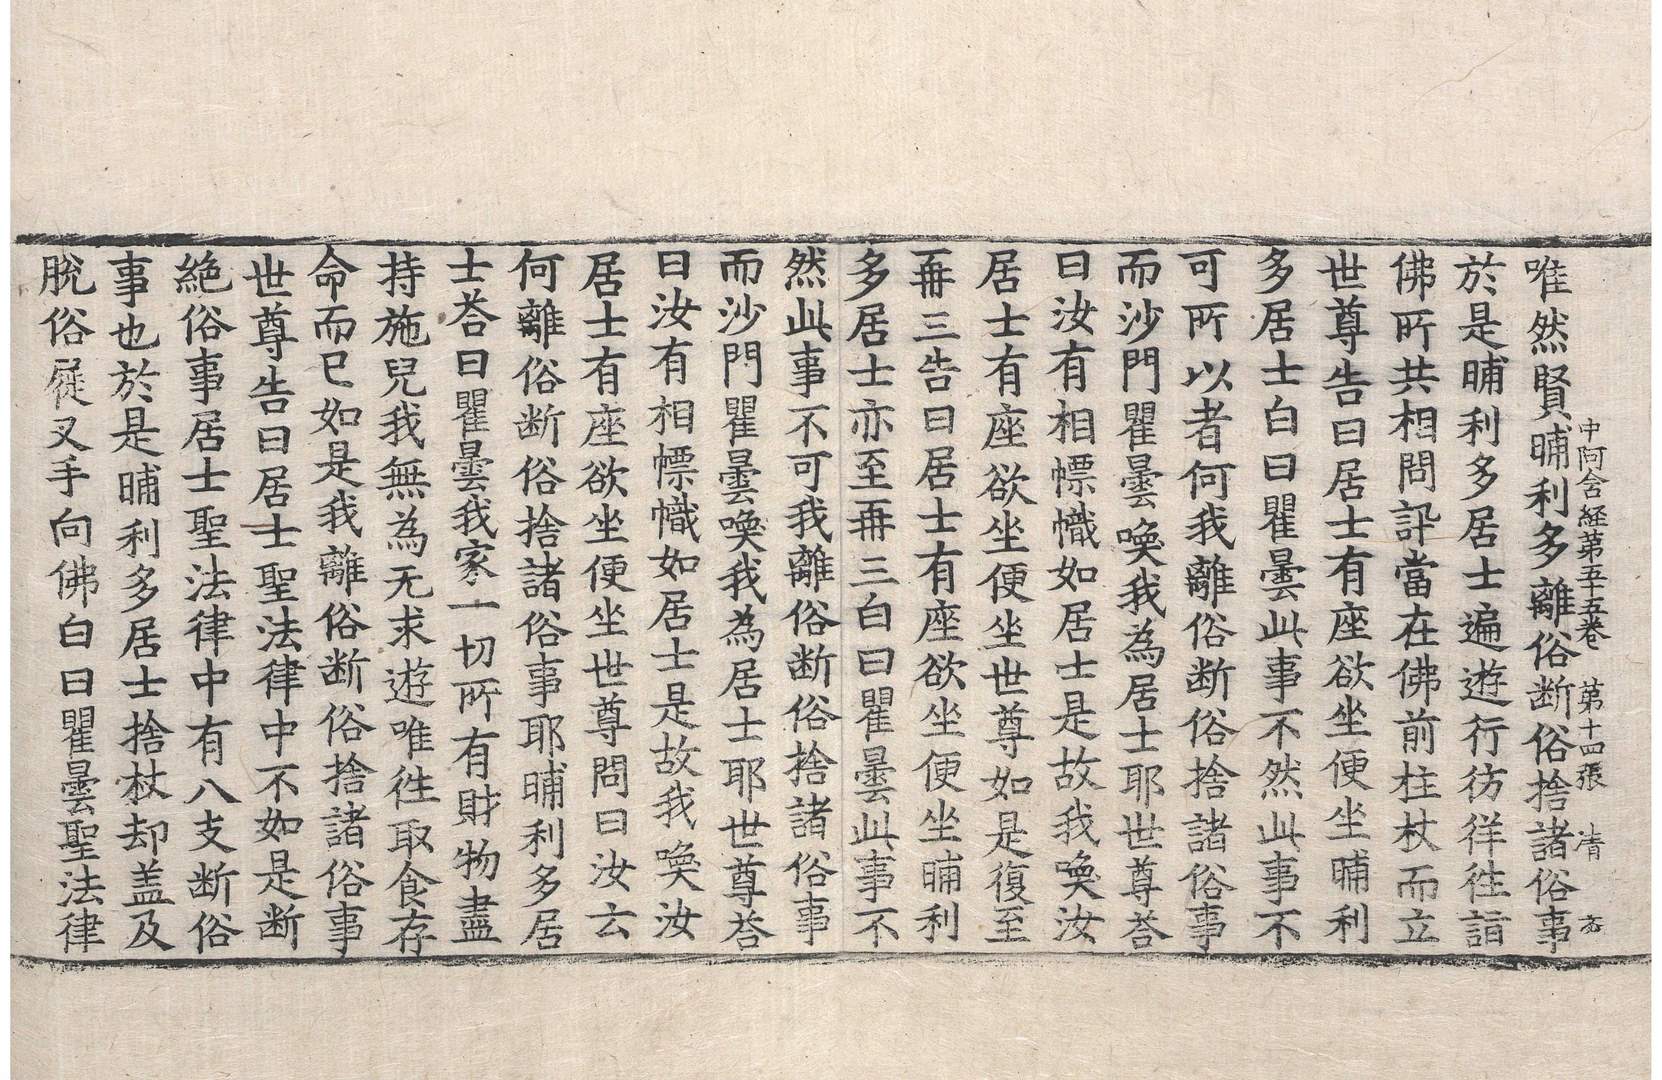 中阿含經第五十五卷 第十四張 清
唯然賢晡利多離俗断俗捨諸俗事
於是晡利多居士遍遊行彷徉徃詣
佛所共相問訊當在佛前柱杖而立
世尊告曰居士有座欲坐便坐晡利
多居士白曰瞿曇此事不然此事不
可所以者何我離俗断俗捨諸俗事
而沙門瞿曇喚我為居士耶世尊荅
曰汝有相幖幟如居士是故我喚汝
居士有座欲坐便坐世尊如是復至
再三告曰居士有座欲坐便坐晡利
多居士亦至再三白曰瞿曇此事不
然此事不可我離俗断俗捨諸俗事
而沙門瞿曇喚我為居士耶世尊荅
曰汝有相幖幟如居士是故我喚汝
居士有座欲坐便坐世尊問曰汝云
何離俗断俗捨諸俗事耶晡利多居
士荅曰瞿曇我家一切所有財物盡
持施兒我無為无求遊唯徃取食存
命而已如是我離俗断俗捨諸俗事
世尊告曰居士聖法律中不如是断
絶俗事居士聖法律中有八支断俗
事也於是晡利多居士捨杖却盖及
脫俗屣叉手向佛白曰瞿曇聖法律